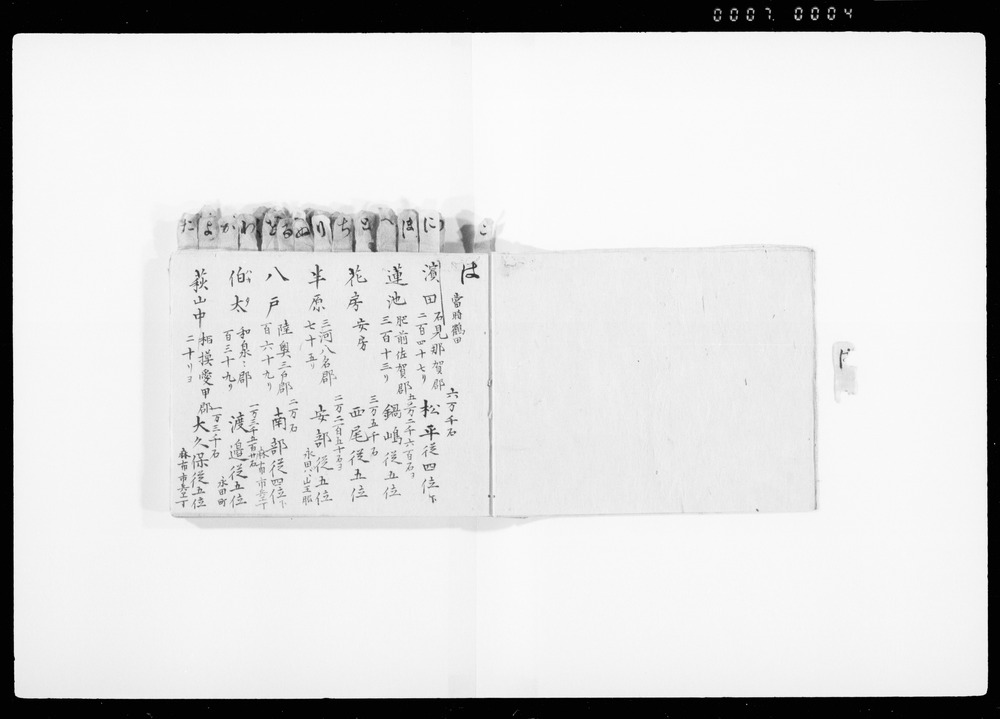 0007 0004
に ほ へ と ち り ぬ る を わ か よ た
は
濱田 當時鶴田 石見那賀郡 二百四十七リ 六万千石 松平従四位下
蓮池 肥前佐賀郡 三百十三リ 五万二千六百石 鍋嶋従五位
花房 安房 三万五千石 西尾従五位
半原 三河八名郡 七十五リ 二万二百五十石ヨ 安部従五位
八戸 陸奥三戸郡 百六十九リ 二万石 南部従四位下 麻布市兵エ丁
伯太 和泉〻郡 百三十九リ 一万三千五百廿石 渡邉従五位 永田町
荻山中 相摸愛甲郡 二十リヨ 一万三千石 大久保従五位 麻布市兵エ丁